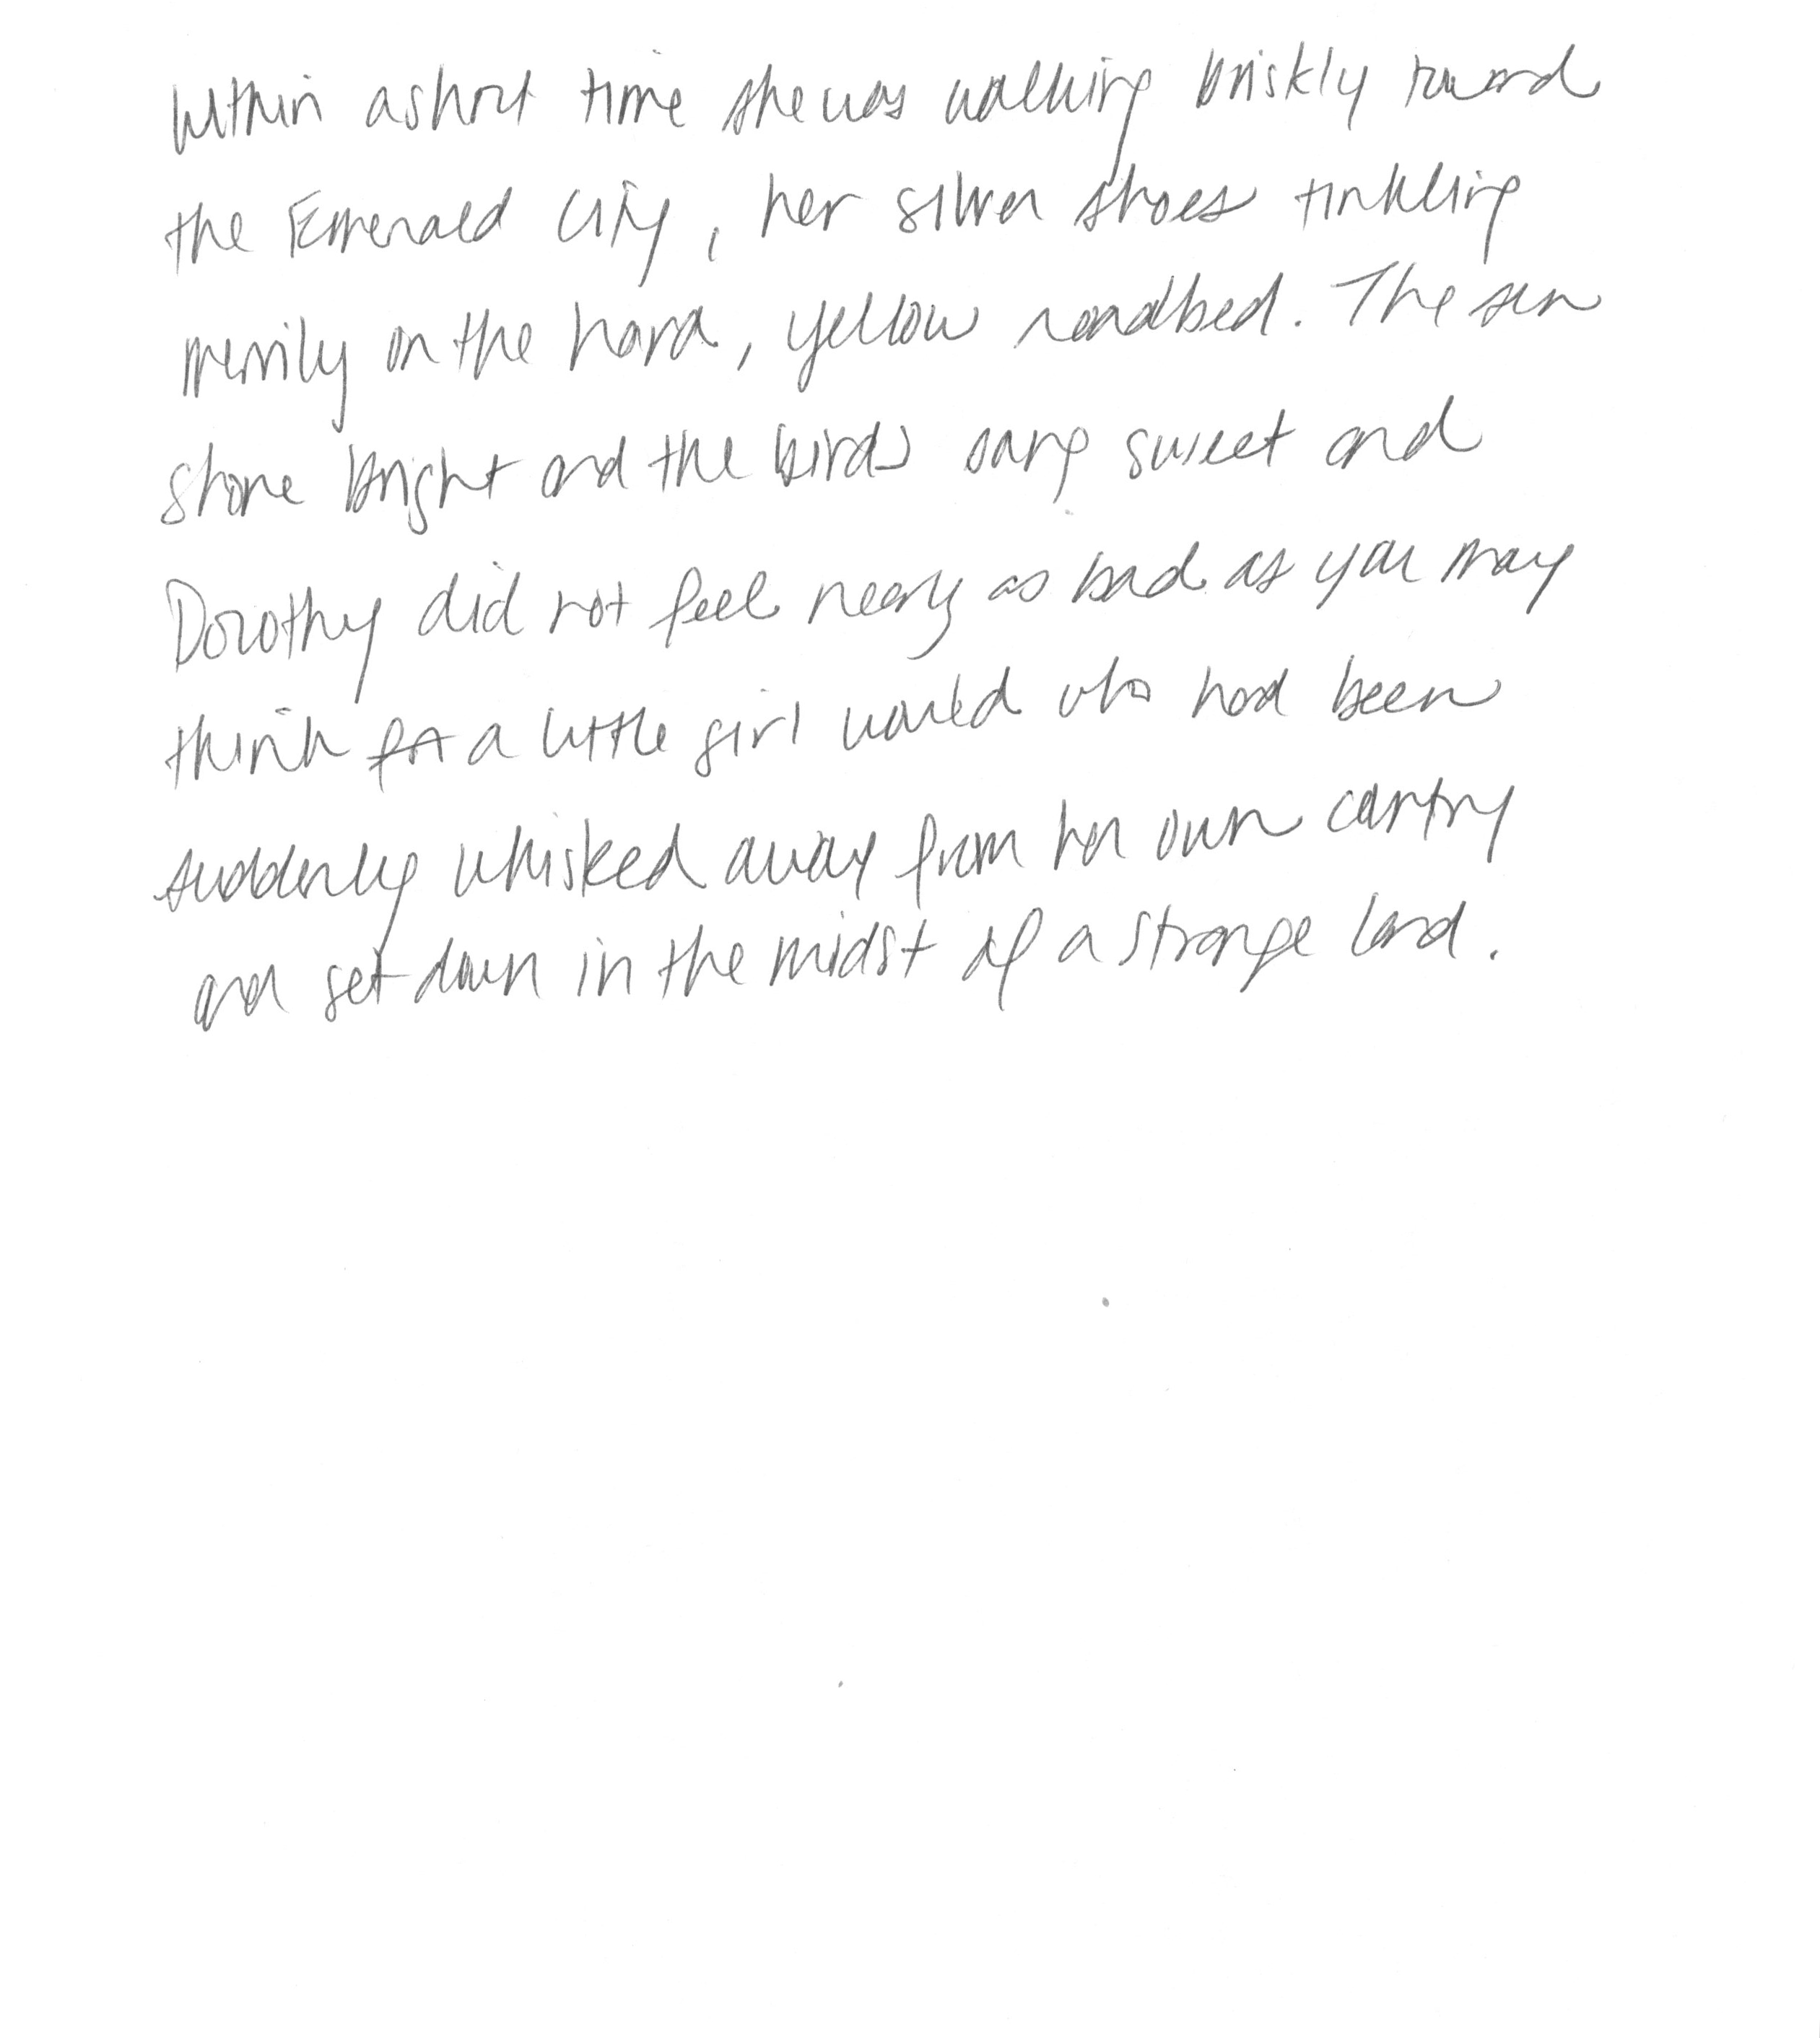 Within a short time she was walking briskly toward
the Emerald City, her silver shoes tinkling
merrily on the hard, yellow roadbed. The sun
shone bright and the birds sang sweet and
Dorothy did not feel nearly as bad as you may
think a little girl would who had been
suddenly whisked away from her own country
and set down in the midst of a strange land.